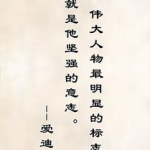 伟大人物最明显的标志
就是他坚强的意志。
——爱迪